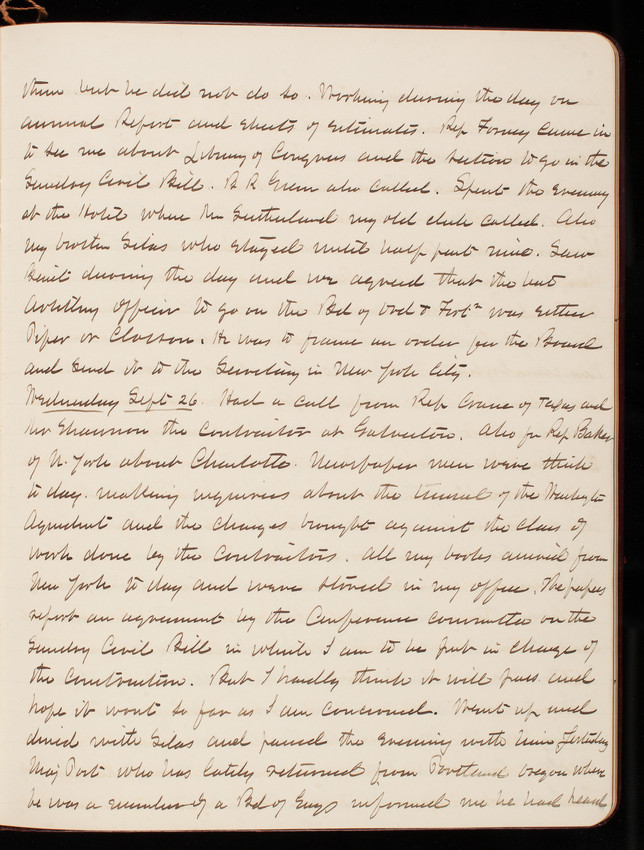 them but he did not do so. Working during the day on
annual Report and sheets of estimates. Rep Forney came in
to see me about Library of Congress and the section to go in the
Sundry Civil Bill. B R Green also called. Spent the evening
at the Hotel where Mr Sutherland my old clerk called. Also
my brother Silas who stayed until half past nine. Saw
during the day and we agreed that the best
Artillery Officer to go on the Bd of Ord & Fortn was either
Piper or Closson. He was to frame an order for the Board
and send it to the Secretary in New York City.
Wednesday Sept 26. Had a call from Rep Crane of Texas and
Mr Shannon the contractor at Galveston. Also fr Rep Baker
of N. York about Charlotte. Newspaper men were thick
to day. making inquiries about the tunnel of the Washington
Aqueduct and the charges brought against the class of
work done by the contractors. All my books arrived from
New York to day and were stored in my office. The papers
report an agreement by the Conference committee on the
Sundry Civil Bill in which I am to be put in charge of
the construction. But I hardly think it will pass and
hope it wont so far as I am concerned. Went up and
dined with Silas and passed the evening with him. Yesterday
Maj Post who has lately returned from Portland Oregon where
he was a member of a Bd of Engs informed me he had heard